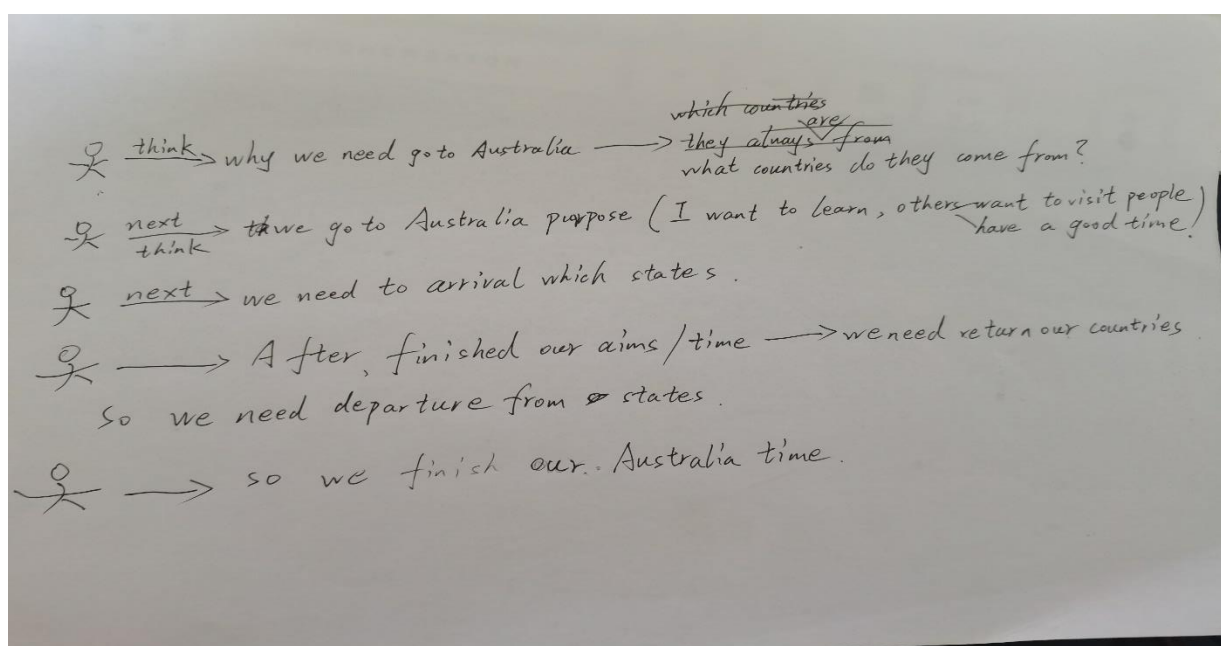 which countries
are
think why we need go to Australia they always from
what countries do they come from?
next think we go to Australia purpose (I want to learn, others want to visit people
have a good time.)
next we need to arrival which states.
After, finished our aims/time we need return our countries
So we need departure from states.
so we finish our. Australia time.